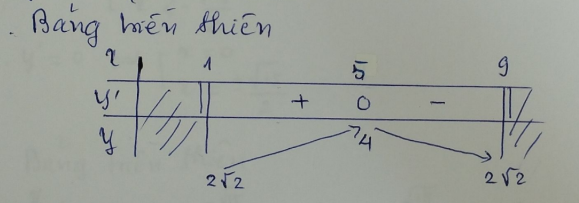 . Bảng biến thiên
x 1 5 9
y' || + 0 - ||
y 4
2√2 2√2